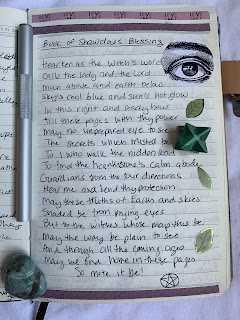 Book of Shadows Blessing
Hearken as the Witch's word
Calls the lady and the Lord
Moon above and earth below
Sky's cool blue and sun's hot glow
In this right and ready hour
Fill these pages with thy power
May no unprepared eye to see
The secrets which must be
To I who walk the hidden and
To find the hearthstone's calm abode
Guardians from the four directions
Hear me and lend thy protection
May these truths of Earth and skies
Shaded be from prying eyes
But to the witches whose map this be
May the way be plain to see
And through all the coming ages
May we find home in these pages
So mote it be!